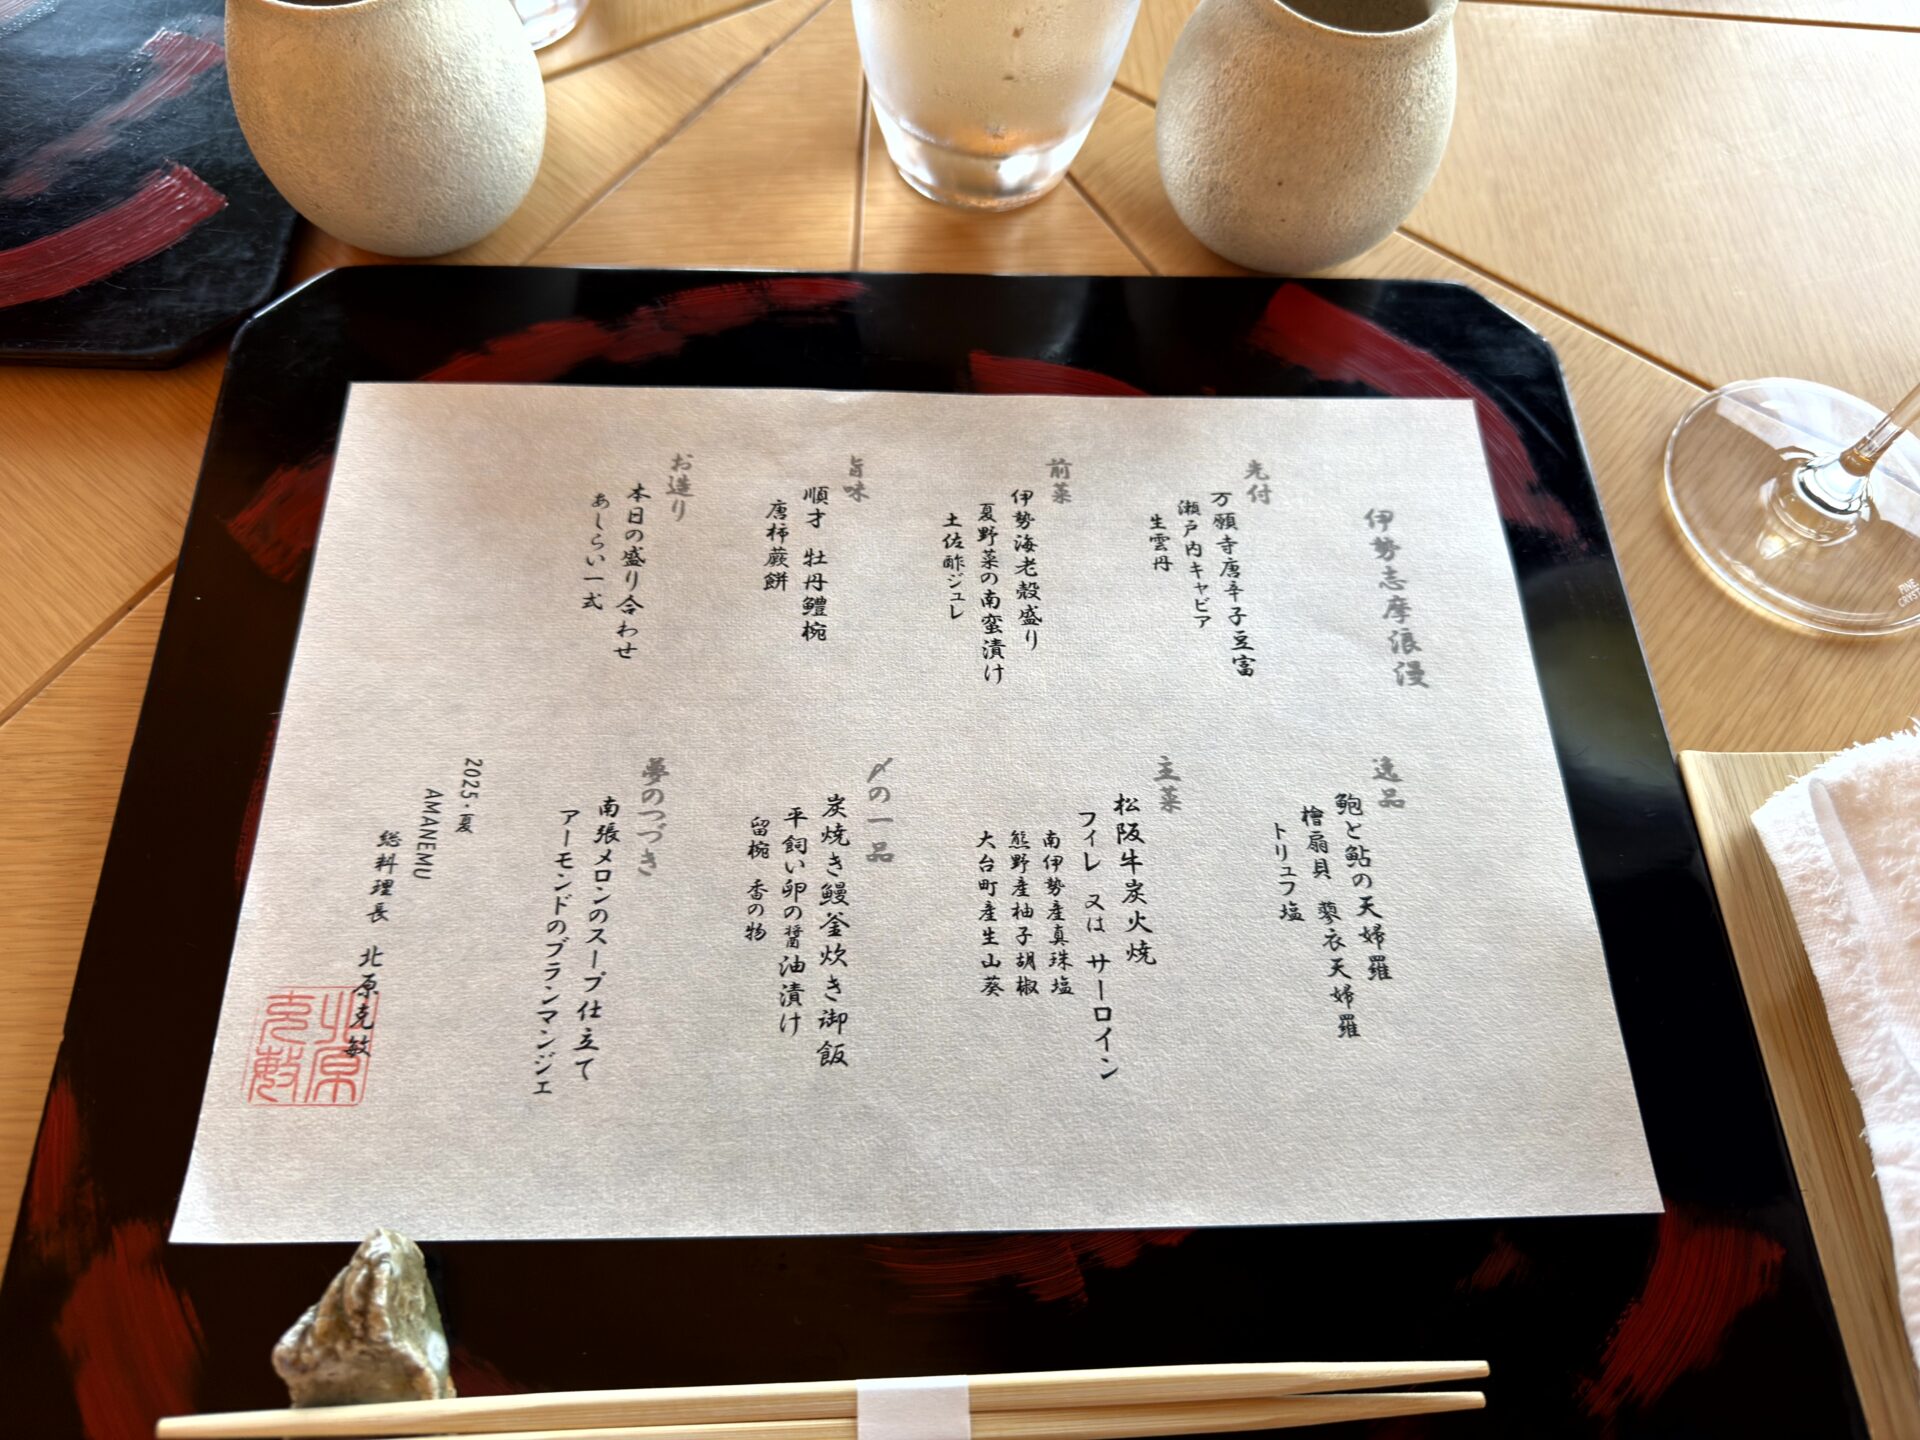 伊勢志摩浪漫
先付
万願寺唐辛子豆富
瀬戸内キャビア
生雲丹
前菜
伊勢海老殻盛り
夏野菜の南蛮漬け
土佐酢ジュレ
旨味
順才 牡丹鱧椀
唐柿蕨餅
お造り
本日の盛り合わせ
あしらい一式
逸品
鮑と鮎の天婦羅
檜扇貝 蓼衣天婦羅
トリュフ塩
主菜
松阪牛炭火焼
フィレ 又は サーロイン
南伊勢産真珠塩
熊野産柚子胡椒
大台町産生山葵
〆の一品
炭焼き鰻釜炊き御飯
平飼い卵の醤油漬け
留椀 香の物
夢のつづき
南張メロンのスープ仕立て
アーモンドのブランマンジェ
2025・夏
AMANEMU
総料理長 北原克敏
北原
克敏
FINE